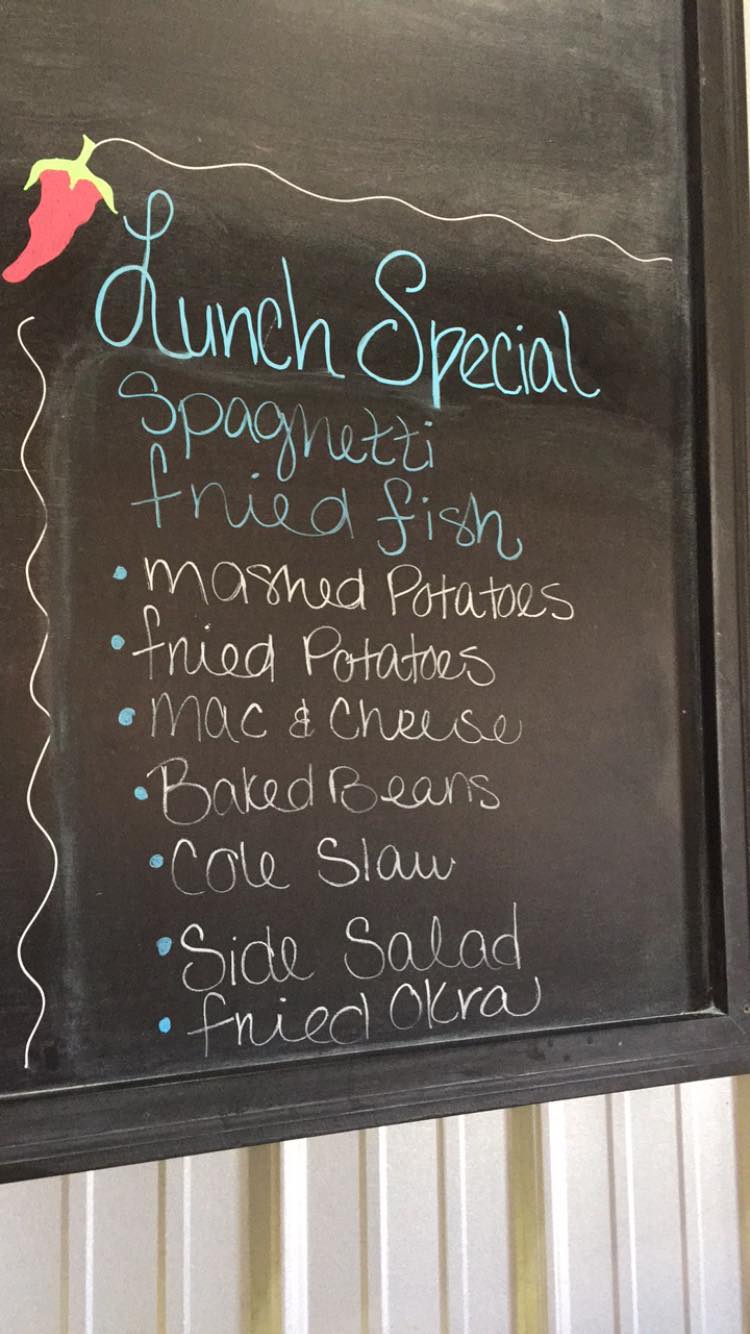 Lunch Special
Spaghetti
fried fish
• mashed Potatoes
• fried Potatoes
• Mac & Cheese
• Baked Beans
• Cole Slaw
• Side Salad
• fried Okra